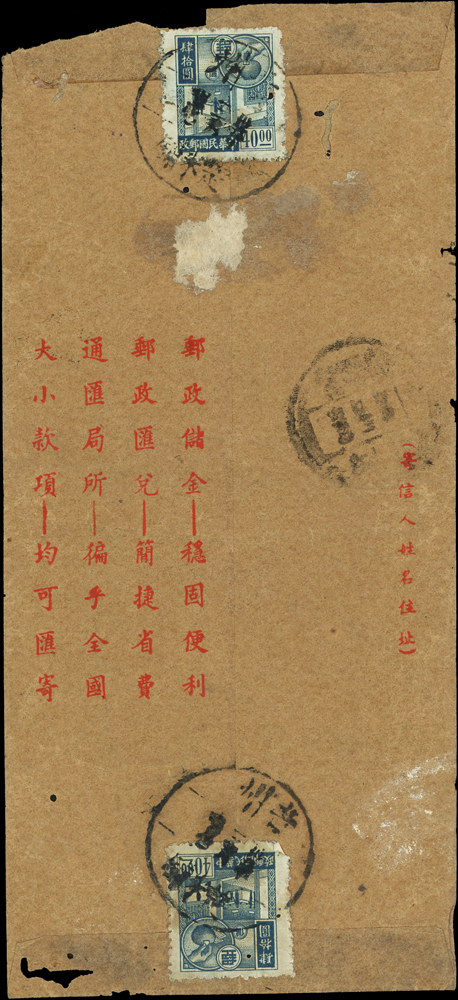 肆拾圓
郵
40.00
政郵國民華中
(寄信人姓名住址)
郵政儲金—穩固便利
郵政匯兌—簡捷省費
通匯局所—徧乎全國
大小款項—均可匯寄
政郵國民華中
40.00
肆拾圓
郵